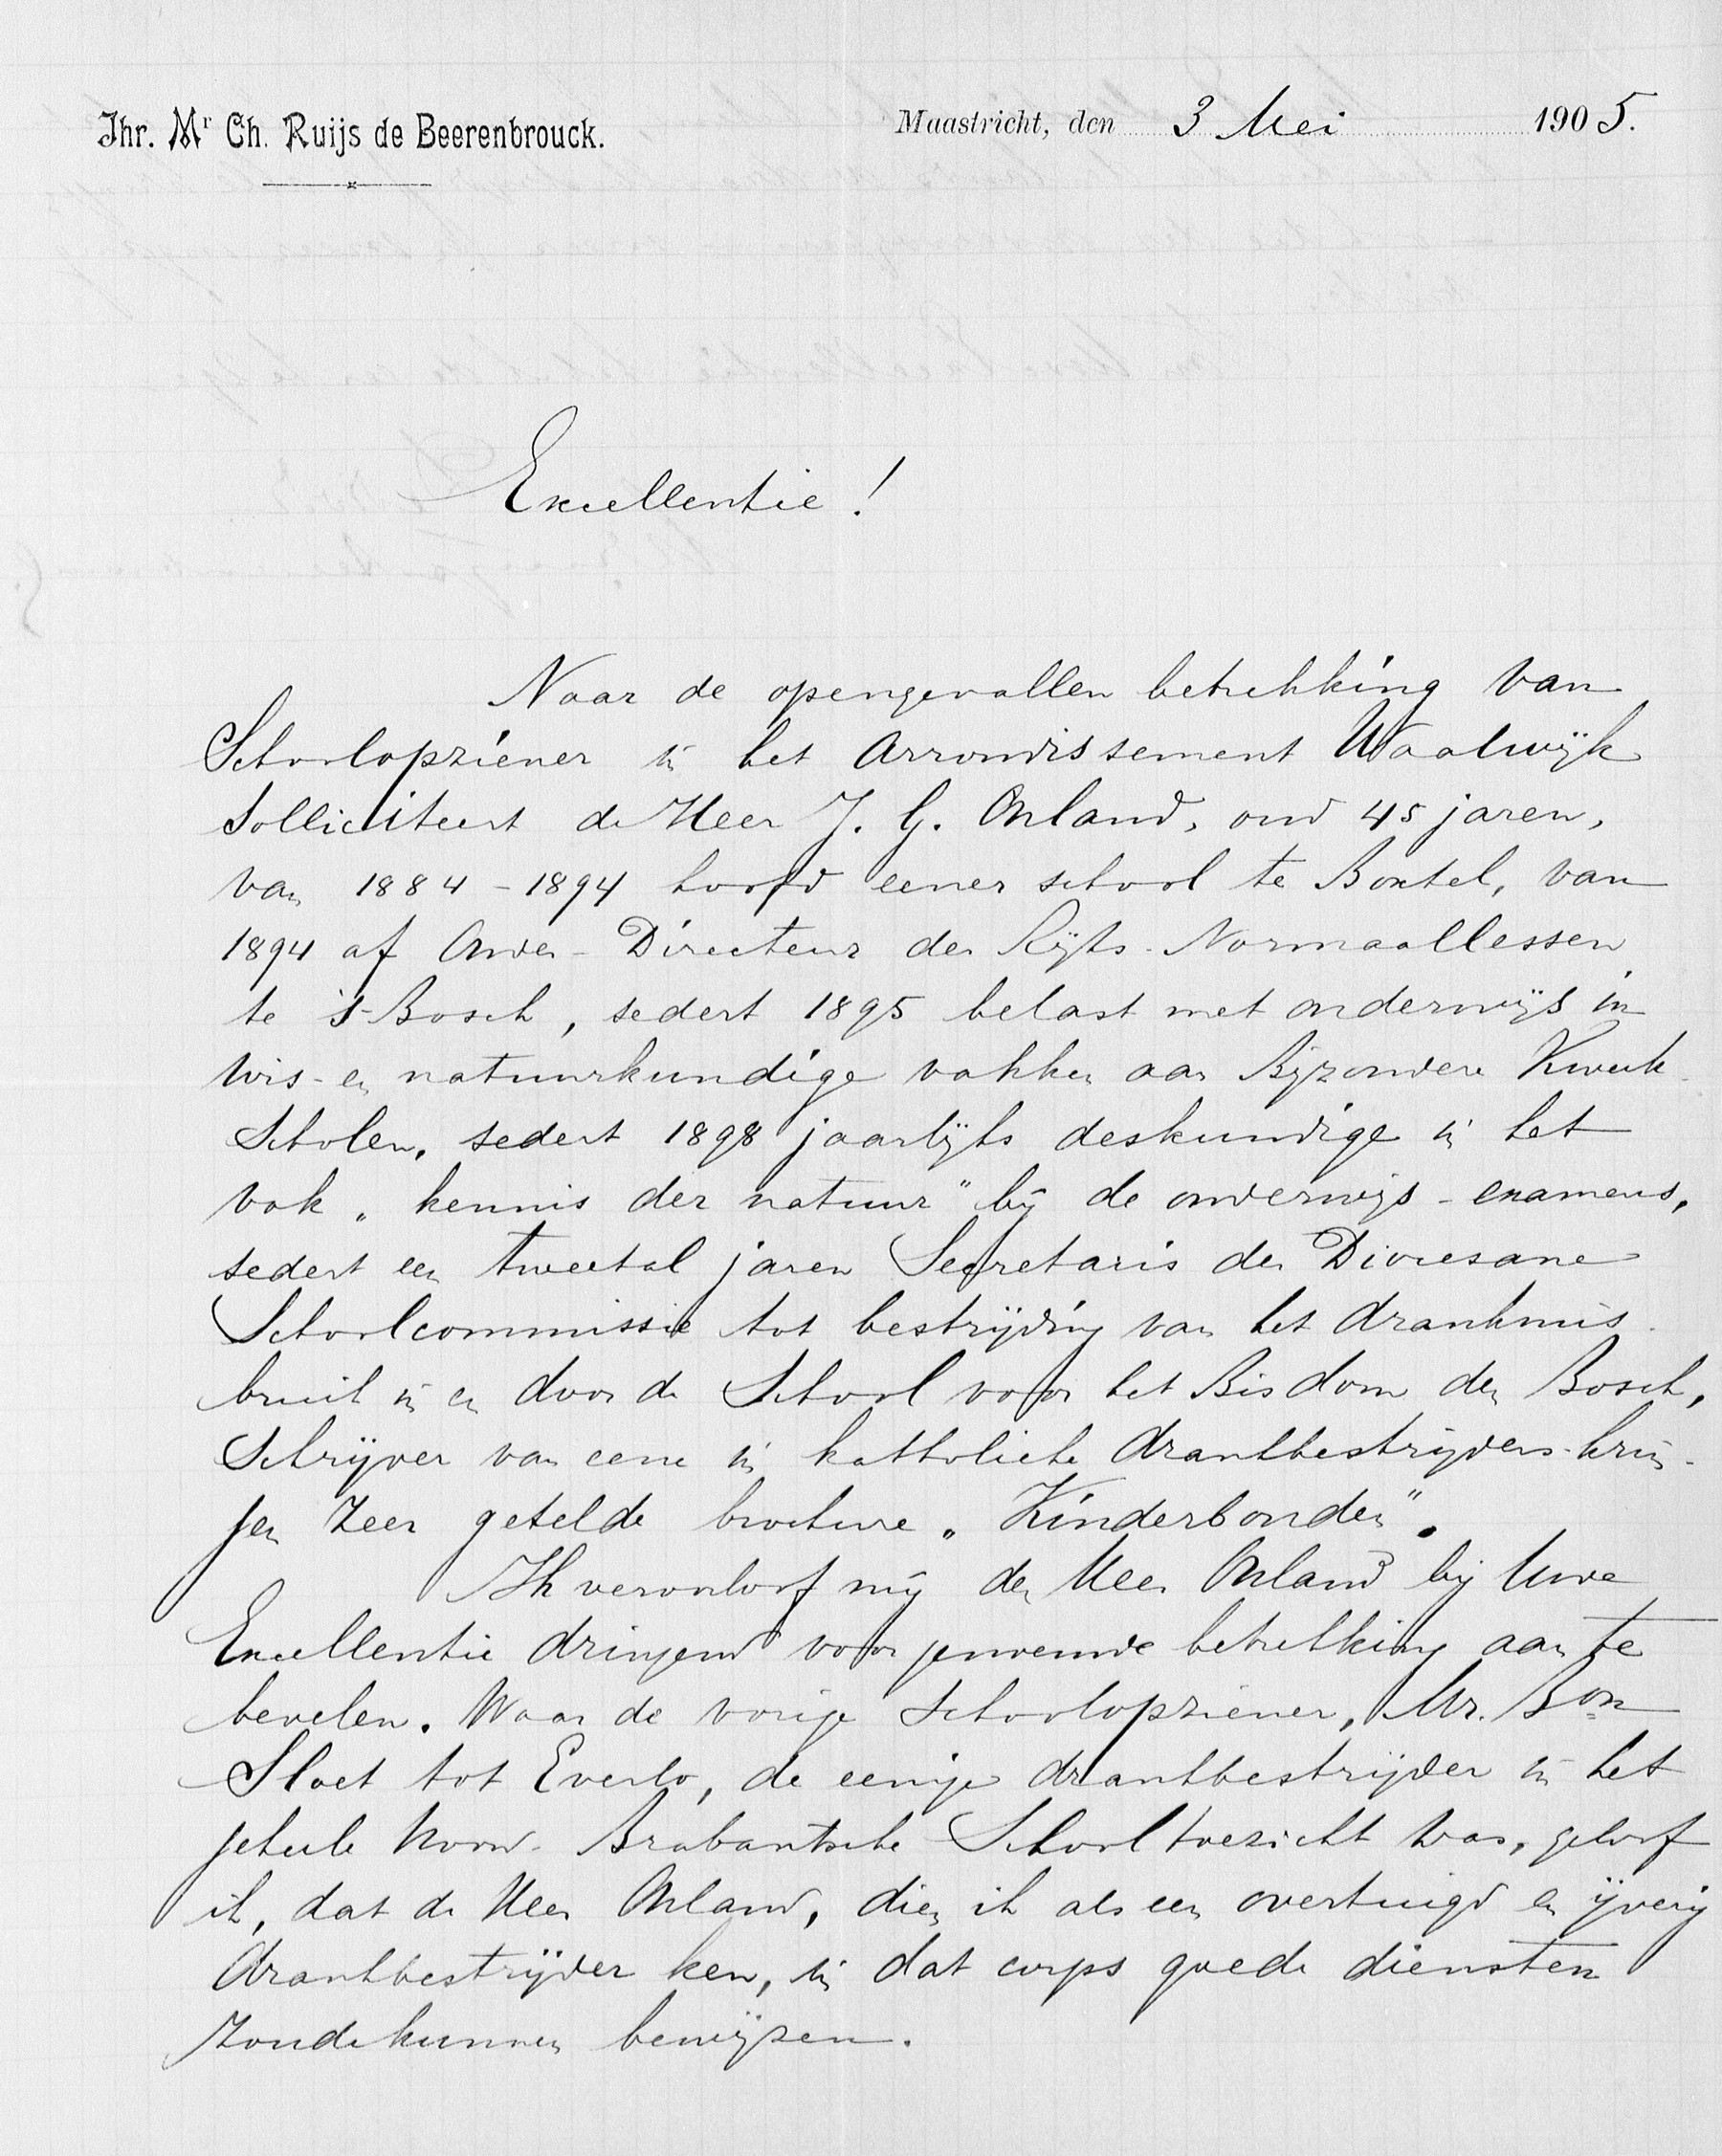 Jhr. Mr Ch. Ruijs de Beerenbrouck.
Maastricht, den 3 Mei 1905.
Excellentie!
Naar de opengevallen betrekking van
Schoolopziener in het Arrondissement Waalwijk
solliciteert de Heer J. G. Onland, oud 45 jaren,
van 1884-1894 hoofd eener school te Boxtel, van
1894 af Onder-Directeur der Rijks-Normaallessen
te 's-Bosch, sedert 1895 belast met onderwijs in
wis- en natuurkundige vakken aan Bijzondere Kweek-
scholen, sedert 1898 jaarlijks deskundige in het
vak „kennis der natuur" bij de onderwijs-examens,
sedert een tweetal jaren Secretaris der Diocesane
Schoolcommissie tot bestrijding van het drankmis-
bruik in en door de School voor het Bisdom den Bosch,
Schrijver van eene in katholieke drankbestrijders-krin-
gen zeer getelde brochure „Kinderbonden".
Ik veroorloof mij den Heer Onland bij Uwe
Excellentie dringend voor genoemde betrekking aan te
bevelen. Waar de vorige Schoolopziener, Mr. Bon
Sloet tot Everlo, de eenige drankbestrijder in het
geheele Noord-Brabantsche Schooltoezicht was, geloof
ik, dat de Heer Onland, dien ik als een overtuigd en ijverig
drankbestrijder ken, in dat corps goede diensten
zoude kunnen bewijzen.